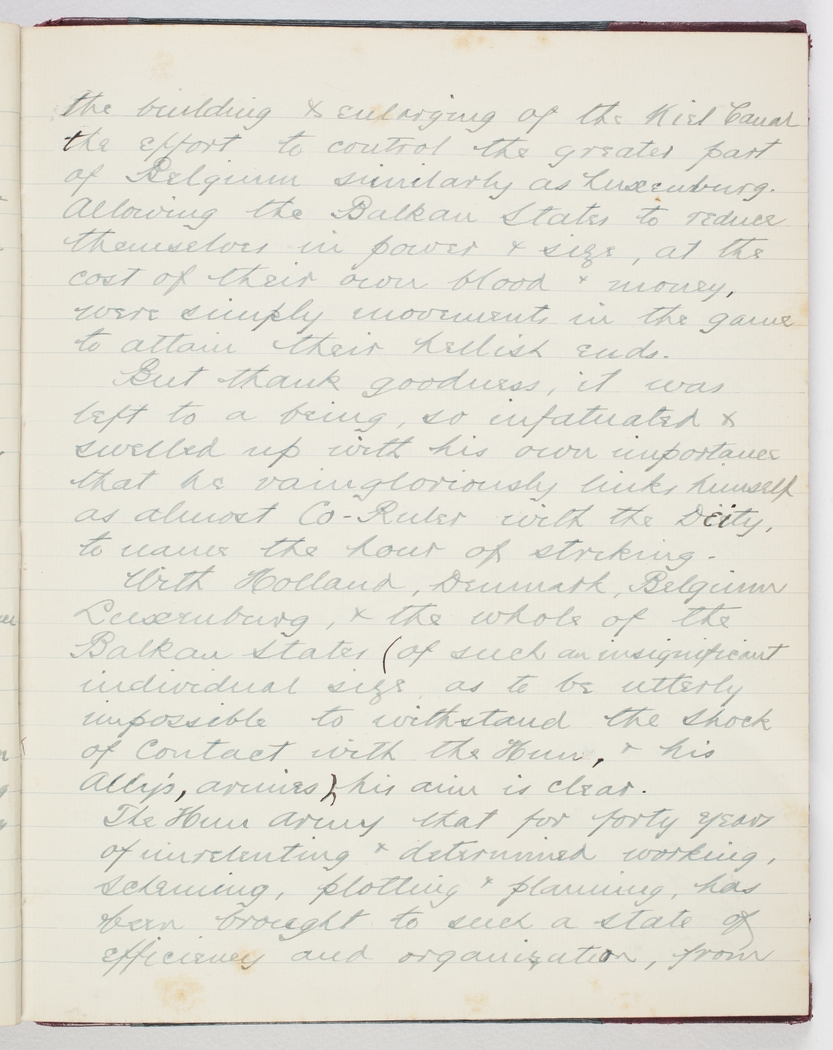 the building & enlarging of the Kiel Canal
the effort to control the greater part
of Belgium similarly as Luxenburg.
Allowing the Balkan States to reduce
themselves in power & size, at the
cost of their own blood & money,
were simply movements in the game
to attain their hellish ends.
But thank goodness, it was
left to a being, so infatuated &
swelled up with his own importance
that he vaingloriously links himself
as almost Co-Ruler with the Deity,
to name the hour of striking.
With Holland, Denmark, Belgium
Luxenburg, & the whole of the
Balkan States (of such an insignificant
individual size as to be utterly
impossible to withstand the shock
of Contact with the Hun, & his
Ally's, armies), his aim is clear.
The Hun Army that for forty years
of unrelenting & determined working,
scheming, plotting & planning, has
been brought to such a state of
efficiency and organization, from